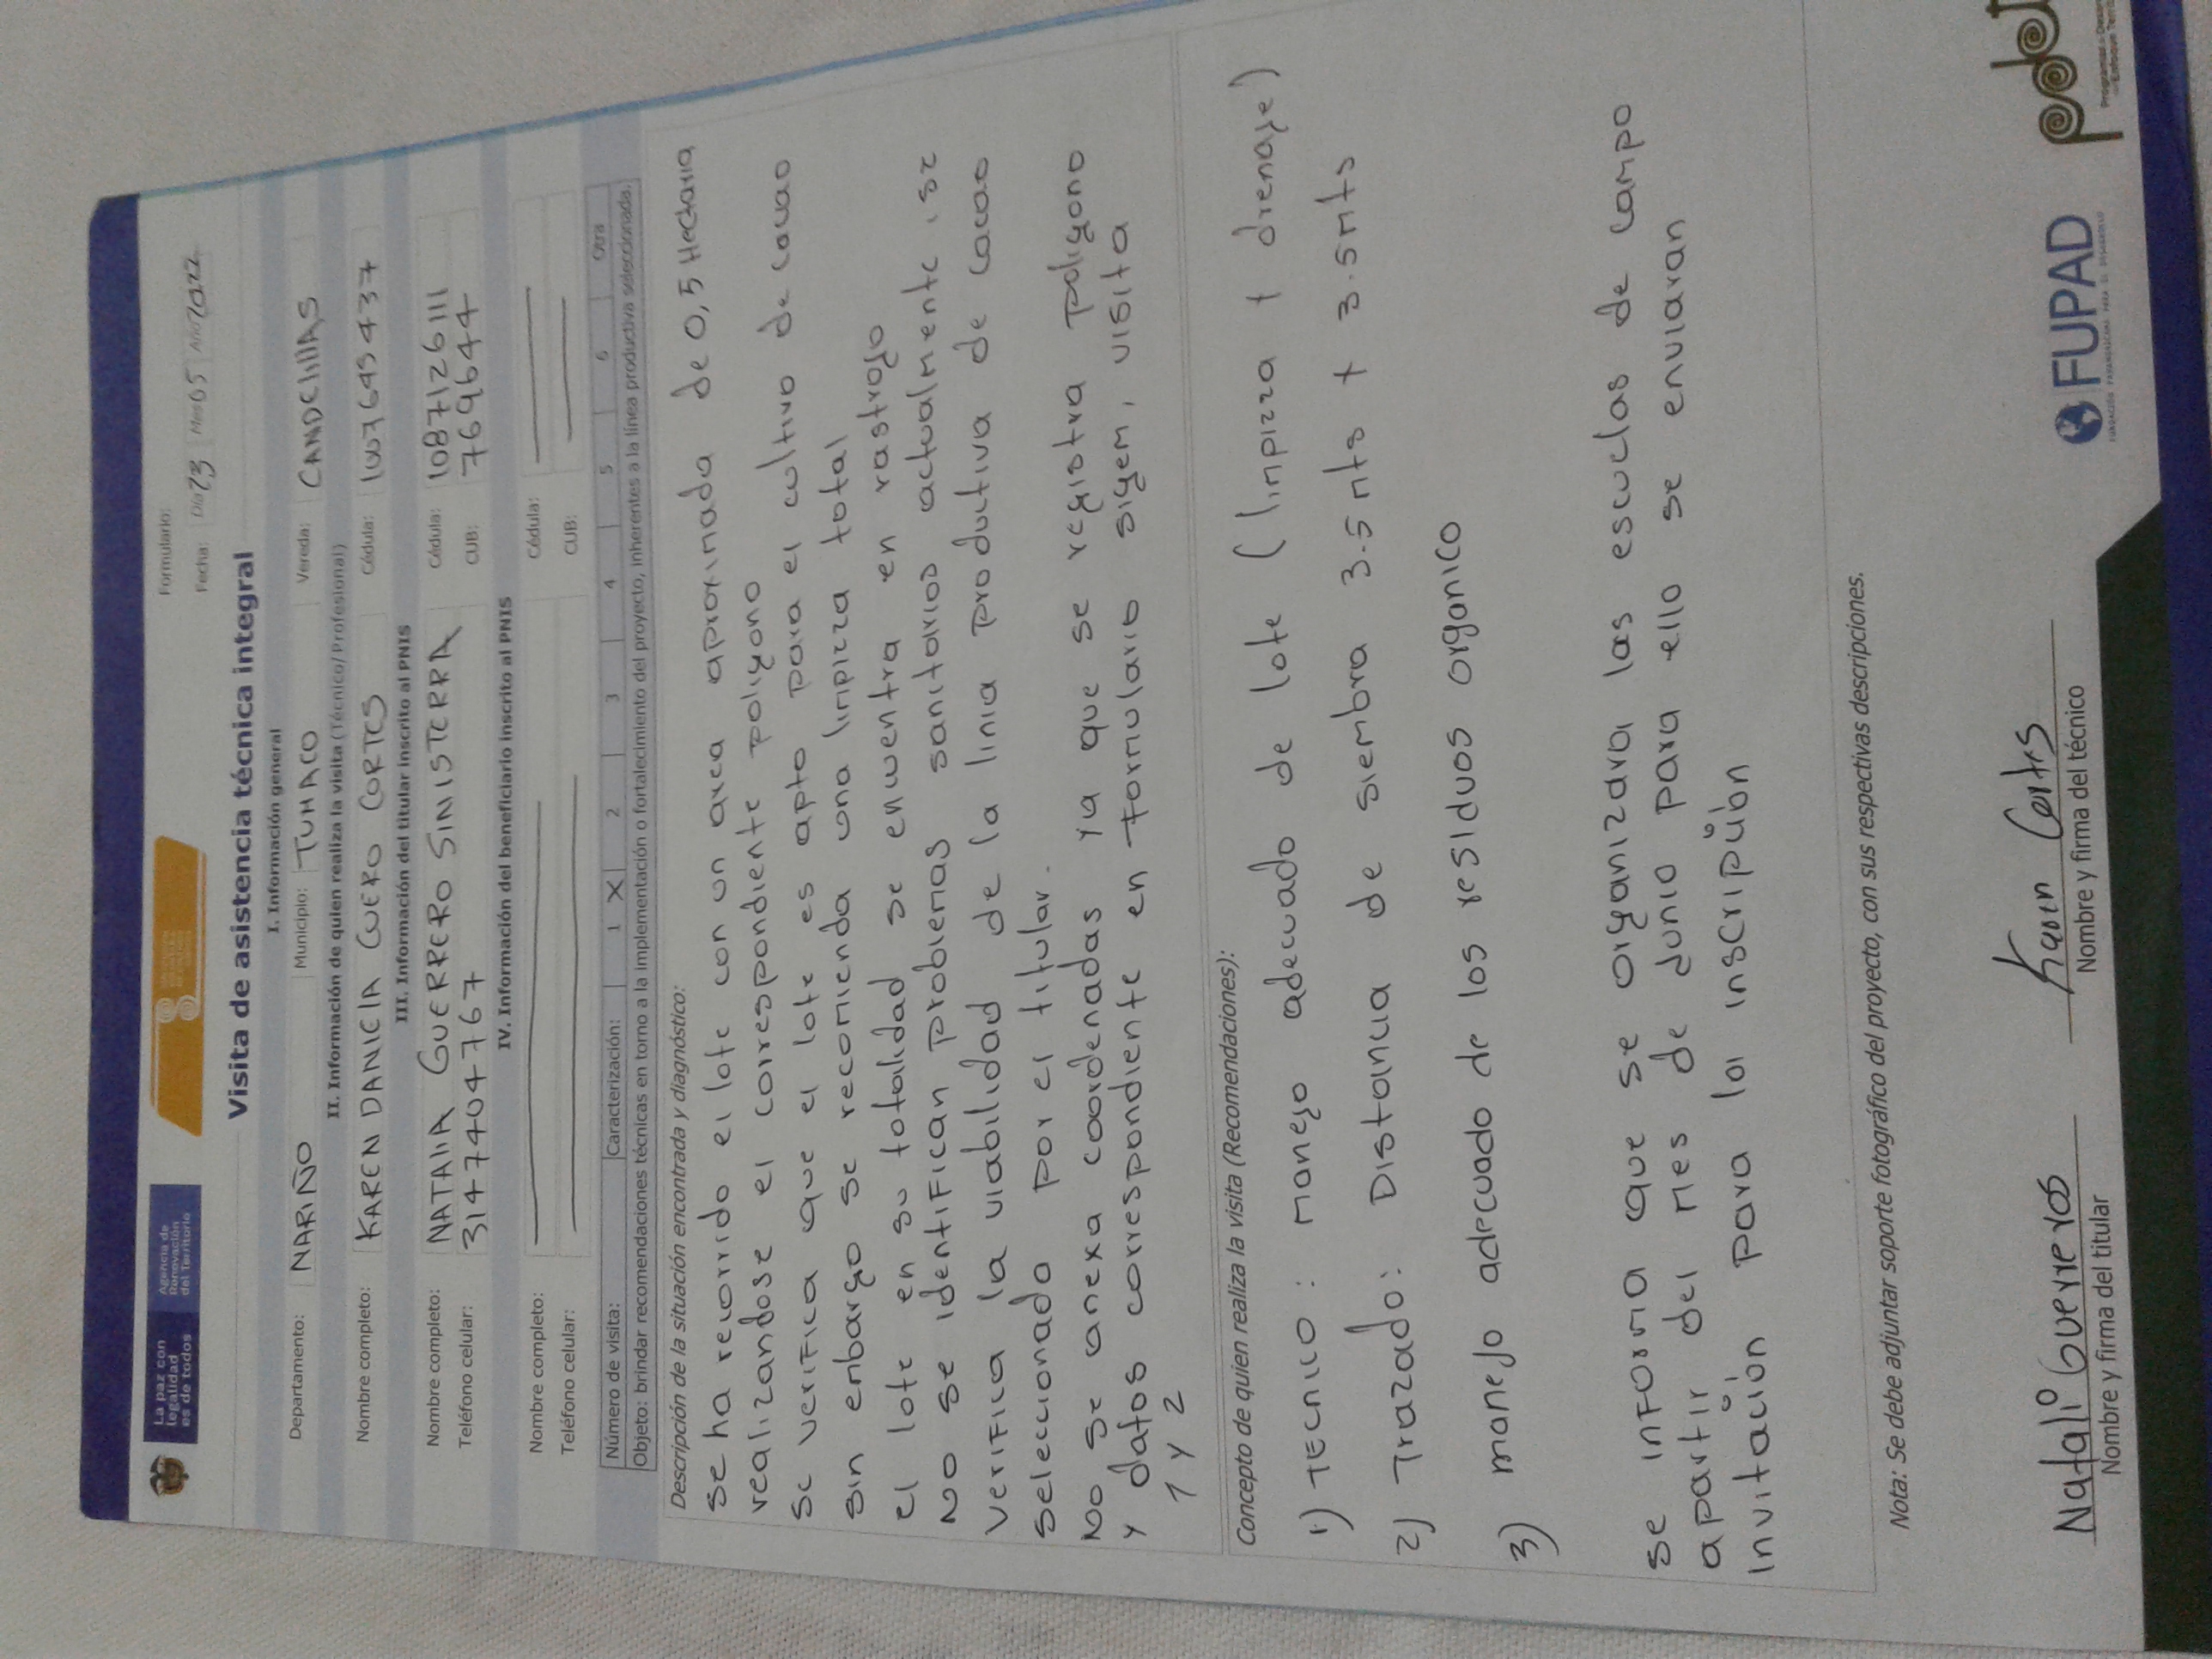 La paz con
legalidad
es de todos
Agencia de
Renovación
del Territorio
Formulario:
Fecha: Día 23 Mes 05 Año 2022
Visita de asistencia técnica integral
I. Información general
Departamento: NARIÑO Municipio: TUMACO Vereda: CANDELILLAS
II. Información de quien realiza la visita (Técnico/Profesional)
Nombre completo: KAREN DANIELA CUERO CORTES Cédula: 1007645437
III. Información del titular inscrito al PNIS
Nombre completo: NATALIA GUERRERO SINISTERRA Cédula: 1087126111
Teléfono celular: 3147404767 CUB: 769644
IV. Información del beneficiario inscrito al PNIS
Nombre completo: Cédula:
Teléfono celular: CUB:
Número de visita: Caracterización: 1 X 2 3 4 5 6 Otra
Objeto: brindar recomendaciones técnicas en torno a la implementación o fortalecimiento del proyecto, inherentes a la línea productiva seleccionada.
Descripción de la situación encontrada y diagnóstico:
se ha recorrido el lote con un area aproximada de 0,5 Hectaria
realizandose el correspondiente poligono
se verifica que el lote es apto para el cultivo de cacao
sin enbargo se recomienda una limpieza total
el lote en su totalidad se encuentra en rastrojo
No se identifican problemas sanitarios actualmente, se
verifica la viabilidad de la linia productiva de cacao
seleccionado por el titular.
No se anexa coordenadas ya que se registra poligono
y datos correspondiente en formulario sigem, visita
1 y 2
Concepto de quien realiza la visita (Recomendaciones):
1) TECNICO: manejo adecuado de lote (limpieza + drenaje)
2) Trazado: Distancia de siembra 3.5 mts + 3.5mts
3) manejo adecuado de los residuos organico
se informa que se organizara las escuelas de campo
apartir del mes de Junio para ello se enviaran
invitación para la inscripción
Nota: Se debe adjuntar soporte fotográfico del proyecto, con sus respectivas descripciones.
Natali Guerreros
Nombre y firma del titular
Karen Cortes
Nombre y firma del técnico
FUPAD
FUNDACIÓN PANAMERICANA PARA EL DESARROLLO